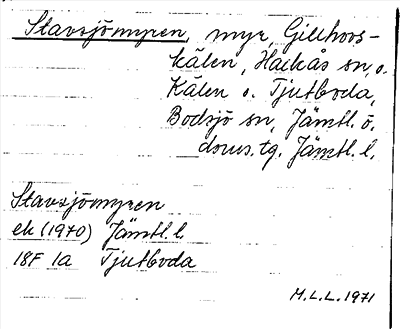 Stavsjömyren, myr, Gillhovs-
kälen, Hackås sn, o.
Kälen o. Tjutboda,
Bodsjö sn, Jämtl. ö.
doms. tg, Jämtl. l.
Stavsjömyren
ek (1970) Jämtl. l.
18F 1a Tjutboda
M.L.L. 1971